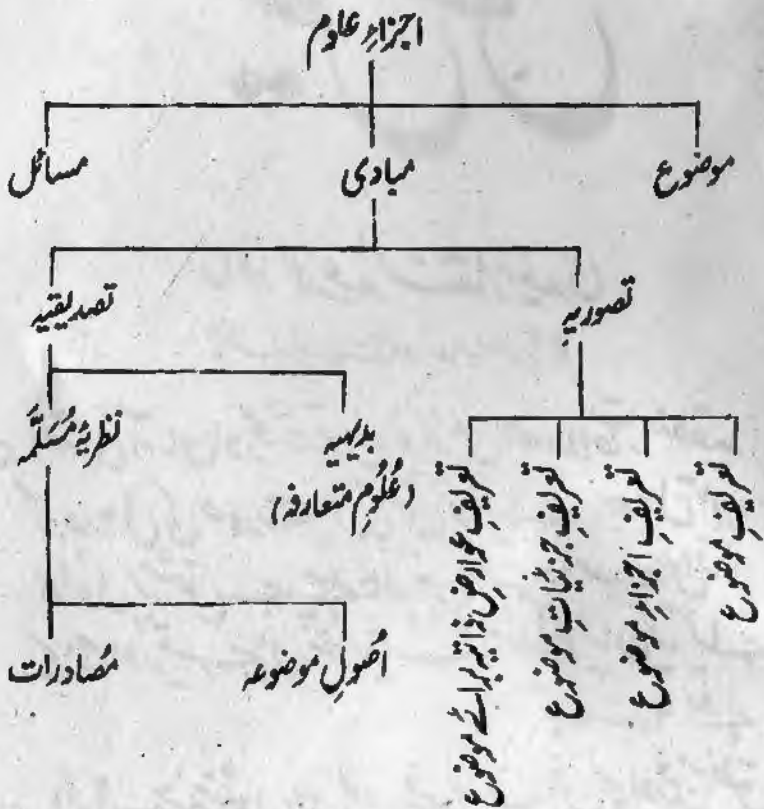 اجزاءِ علوم
موضوع
مبادی
مسائل
تصوریہ
تصدیقیہ
تعریفِ موضوع
تعریفِ اجزاءِ موضوع
تعریفِ جزئیاتِ موضوع
تعریفِ عوارضِ ذاتیہ برائے موضوع
بدیہیہ
(عُلُومِ متعارفہ)
نظریۂ مُسَلَّمہ
اُصولِ موضوعہ
مُصادرات